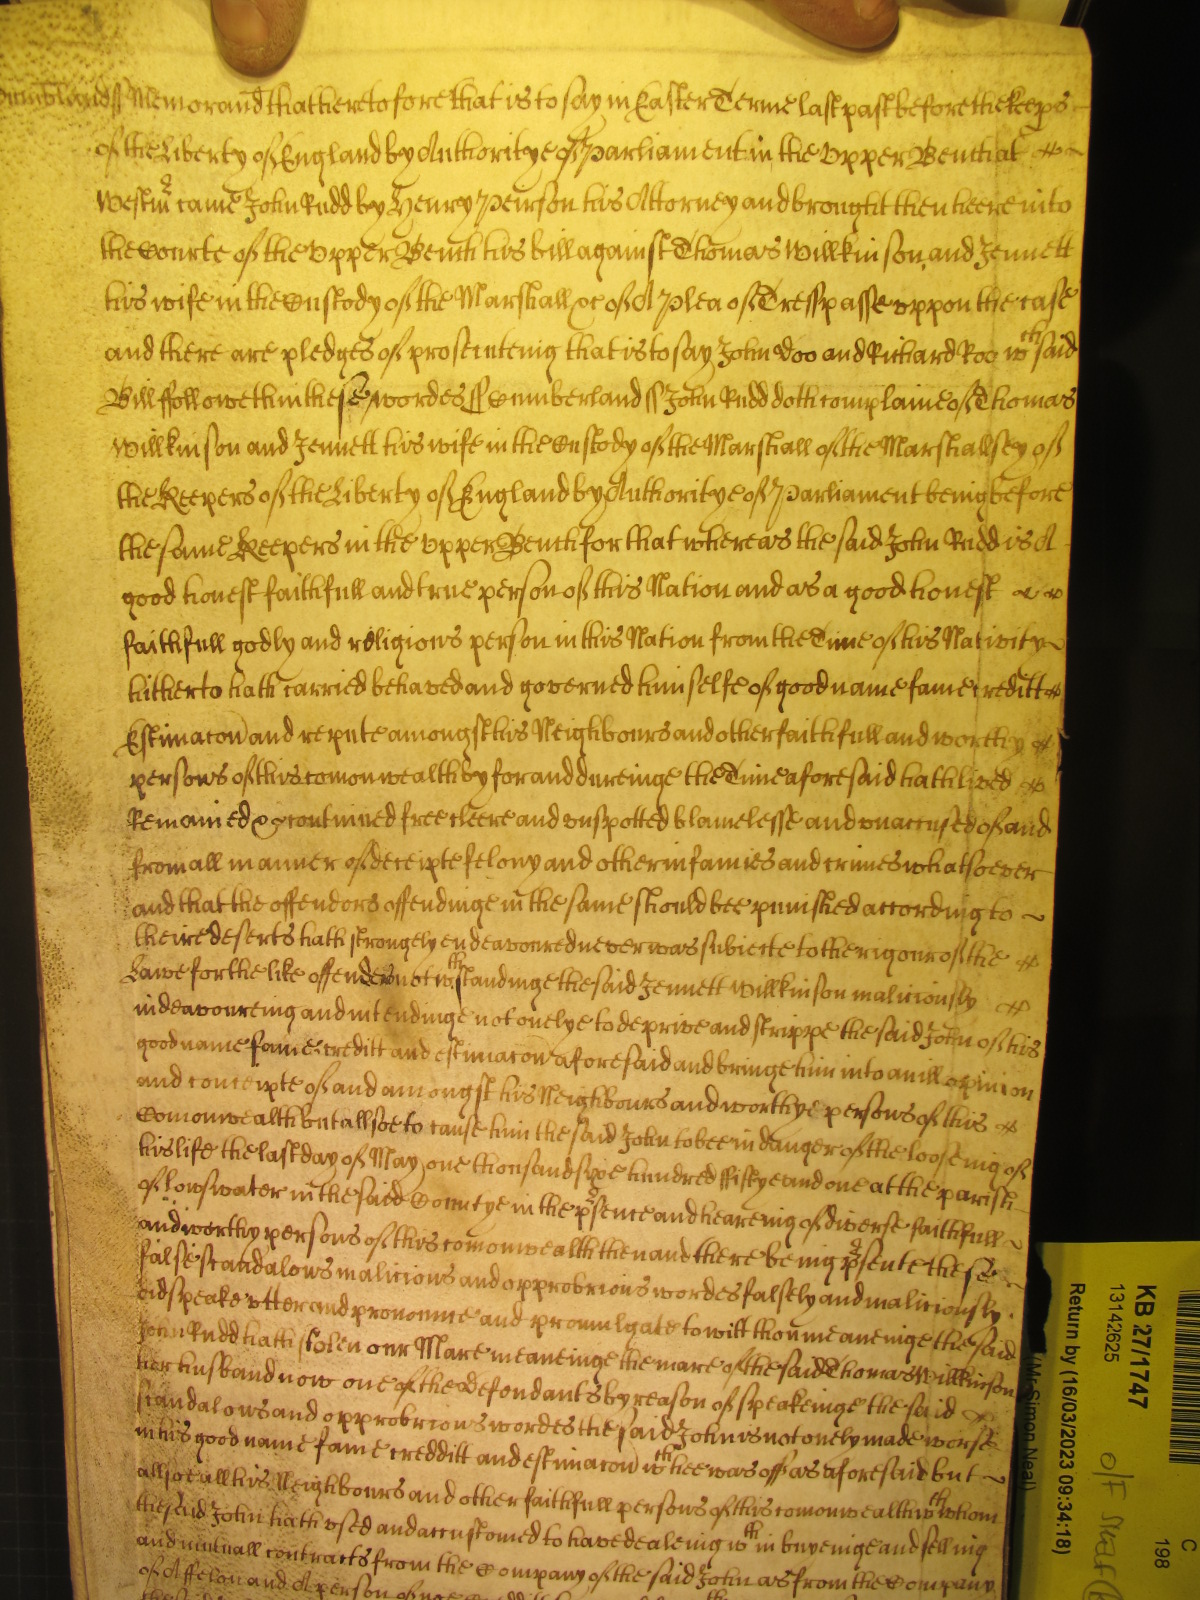 Cumblandss Memorand that heretofore that is to say in Easter Terme last past before the keeps
of the Liberty of England by Authoritye of Parliament in the Upper Bench at
Westmr came John Rudd by Henry Peirson his Attorney and brought then heere into
the Courte of the Upper Bench his bill against Thomas Willkinson and Jennett
his wife in the Custody of the Marshall &c of A Plea of Tresspasse uppon the case
and there are pledges of prosecuteing that is to say John Doo and Richard Roo wch said
Bill ffolloweth in these wordes ss Cumberland ss John Rudd doth complaine of Thomas
Willkinson and Jennett his wife in the Custody of the Marshall of the Marshallsey of
the Keepers of the Liberty of England by Authoritye of Parliament being before
the same Keepers in the Upper Bench for that whereas the said John Rudd is A
good honest faithfull and true person of this Nation and as a good honest
faithfull godly and religious person in this Nation from the Time of his Nativity
hitherto hath carried behaved and governed himselfe of good name fame creditt
Estimacon and repute amongst his Neighbours and other faithfull and worthy
persons of this comonwealth by for and dureinge the Time aforesaid hath lived
Remained & continued free cleere and unspotted blamelesse and unaccused of and
from all manner of deceipte felony and other infamies and crimes whatsoever
and that the offendors offendinge in the same should bee punished according to
theire deserts hath strongely endeavoured never was subiecte to the rigour of the
Lawe for the like offences notwthstandinge the said Jennett Willkinson maliciously
indeavoureing and intendinge not onelye to deprive and strippe the said John of his
good name fame creditt and estimacon aforesaid and bringe him into an ill opinion
and conceipte of and amongst his Neighbours and worthye persons of this
Comonwealth but allsoe to cause him the said John to bee in danger of the looseing of
his life the last day of May one thousand sixe hundred ffiftye and one at the parish
of lowswater in the said Countye in the psence and heareing of diverse faithfull
and worthy persons of this comonwealth then and there being psente these
false scandalows malicious and opprobrious wordes falsely and maliciously
did speake utter and pronounce and promulgate to witt thou meaneinge the said
John Rudd hath stolen our Mare meaneinge the mare of the said Thomas Willkinson
her husband now one of the Defendants by reason of speakeinge the said
scandalows and opprobrious wordes the said John is not onely made worse
in his good name fame credditt and estimacon wch hee was off as aforesaid but
allsoe all his Neighbours and other faithfull persons of this comonwealth wth whom
the said John hath used and accustomed to have dealeing wth in buyeinge and selling
and mutuall contracts from the Company of the said John as from the Company
of A ffelon and A person of noe
KB 27/1747
13142625
C
198
O/F
(Mr Simon Neal)
Return by (16/03/2023 09:34:18)